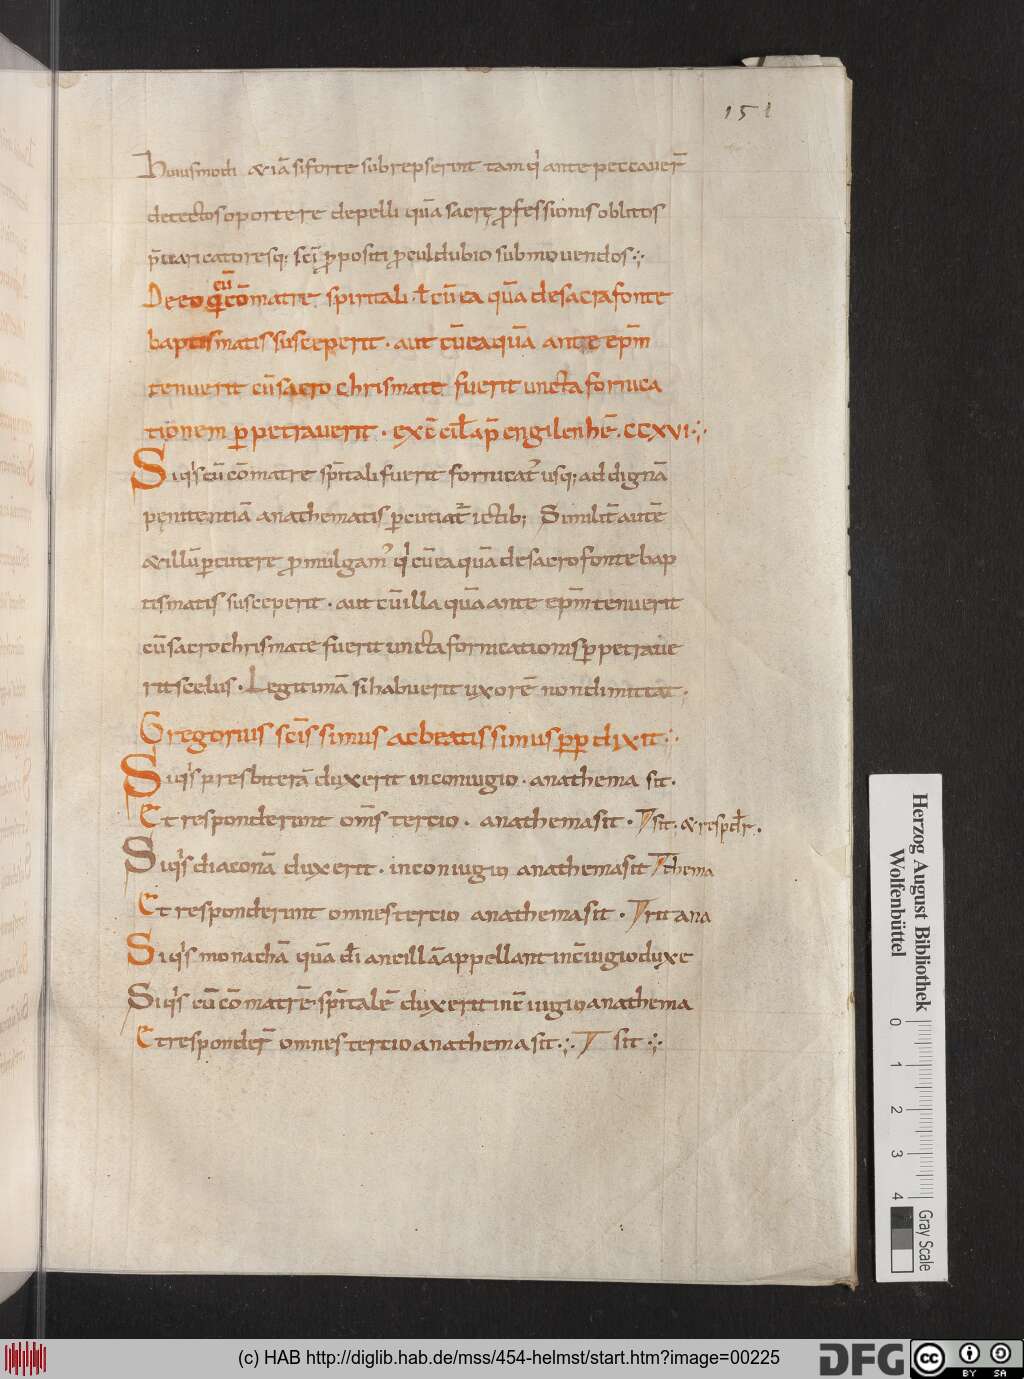 151
Huiusmodi & iā si forte subrepserint tam q̇ ante peccauer̄
detectos oportere depelli quā sacrę p̄fessionis oblitos
p̄uaricatoresq; sc̄i p̄positi p̄culdubio submouendos
cū
De eo qui cōmatre spiritali ł cū ea quā de sacra fonte
baptismatis susceperit · aut cū ea quā ante ep̄m
tenuerit cū sacro chrismate fuerit uncta fornica
tionem p̲petrauerit · ex c̄cil ap̄ engilenhē · CCXVI
Si q̇s cū cōmatre sp̄itali fuerit fornicat᷎ usq; ad dignā
pęnitentiā anathematis p̲cutiat᷎ ictib; Similit̄ autē
& illū p̲cutere p̄mulgam᷎ q̇ cū ea quā de sacro fonte bap
tismatis susceperit · aut cū illa quā ante ep̄m tenuerit
cū sacro chrismate fuerit uncta fornicationis p̲petraue
rit scelus · Legitimā si habuerit uxorē non dimittat ·
Gregorius sc̄issimus ac beatissimus p̲p̲ dixit
Si q̇s presbiterā duxerit in coniugio · anathema sit ·
Et responderunt om̄s tercio · anathema sit · sit · & respdr̄ ·
Si q̇s diaconā duxerit · in coniugio anathema sit thema
Et responderunt omnes tercio anathema sit · rit ana
Si q̇s monachā quā dī ancillā appellant in c̄iugio duxe
Si q̇s cū cōmatrē sp̄italē duxerit in c̄iugio anathema
Et responder̄ omnes tercio anathema sit sit
Herzog August Bibliothek
Wolfenbüttel
0 1 2 3 4
Gray Scale
(c) HAB http://diglib.hab.de/mss/454-helmst/start.htm?image=00225
DFG
cc BY SA